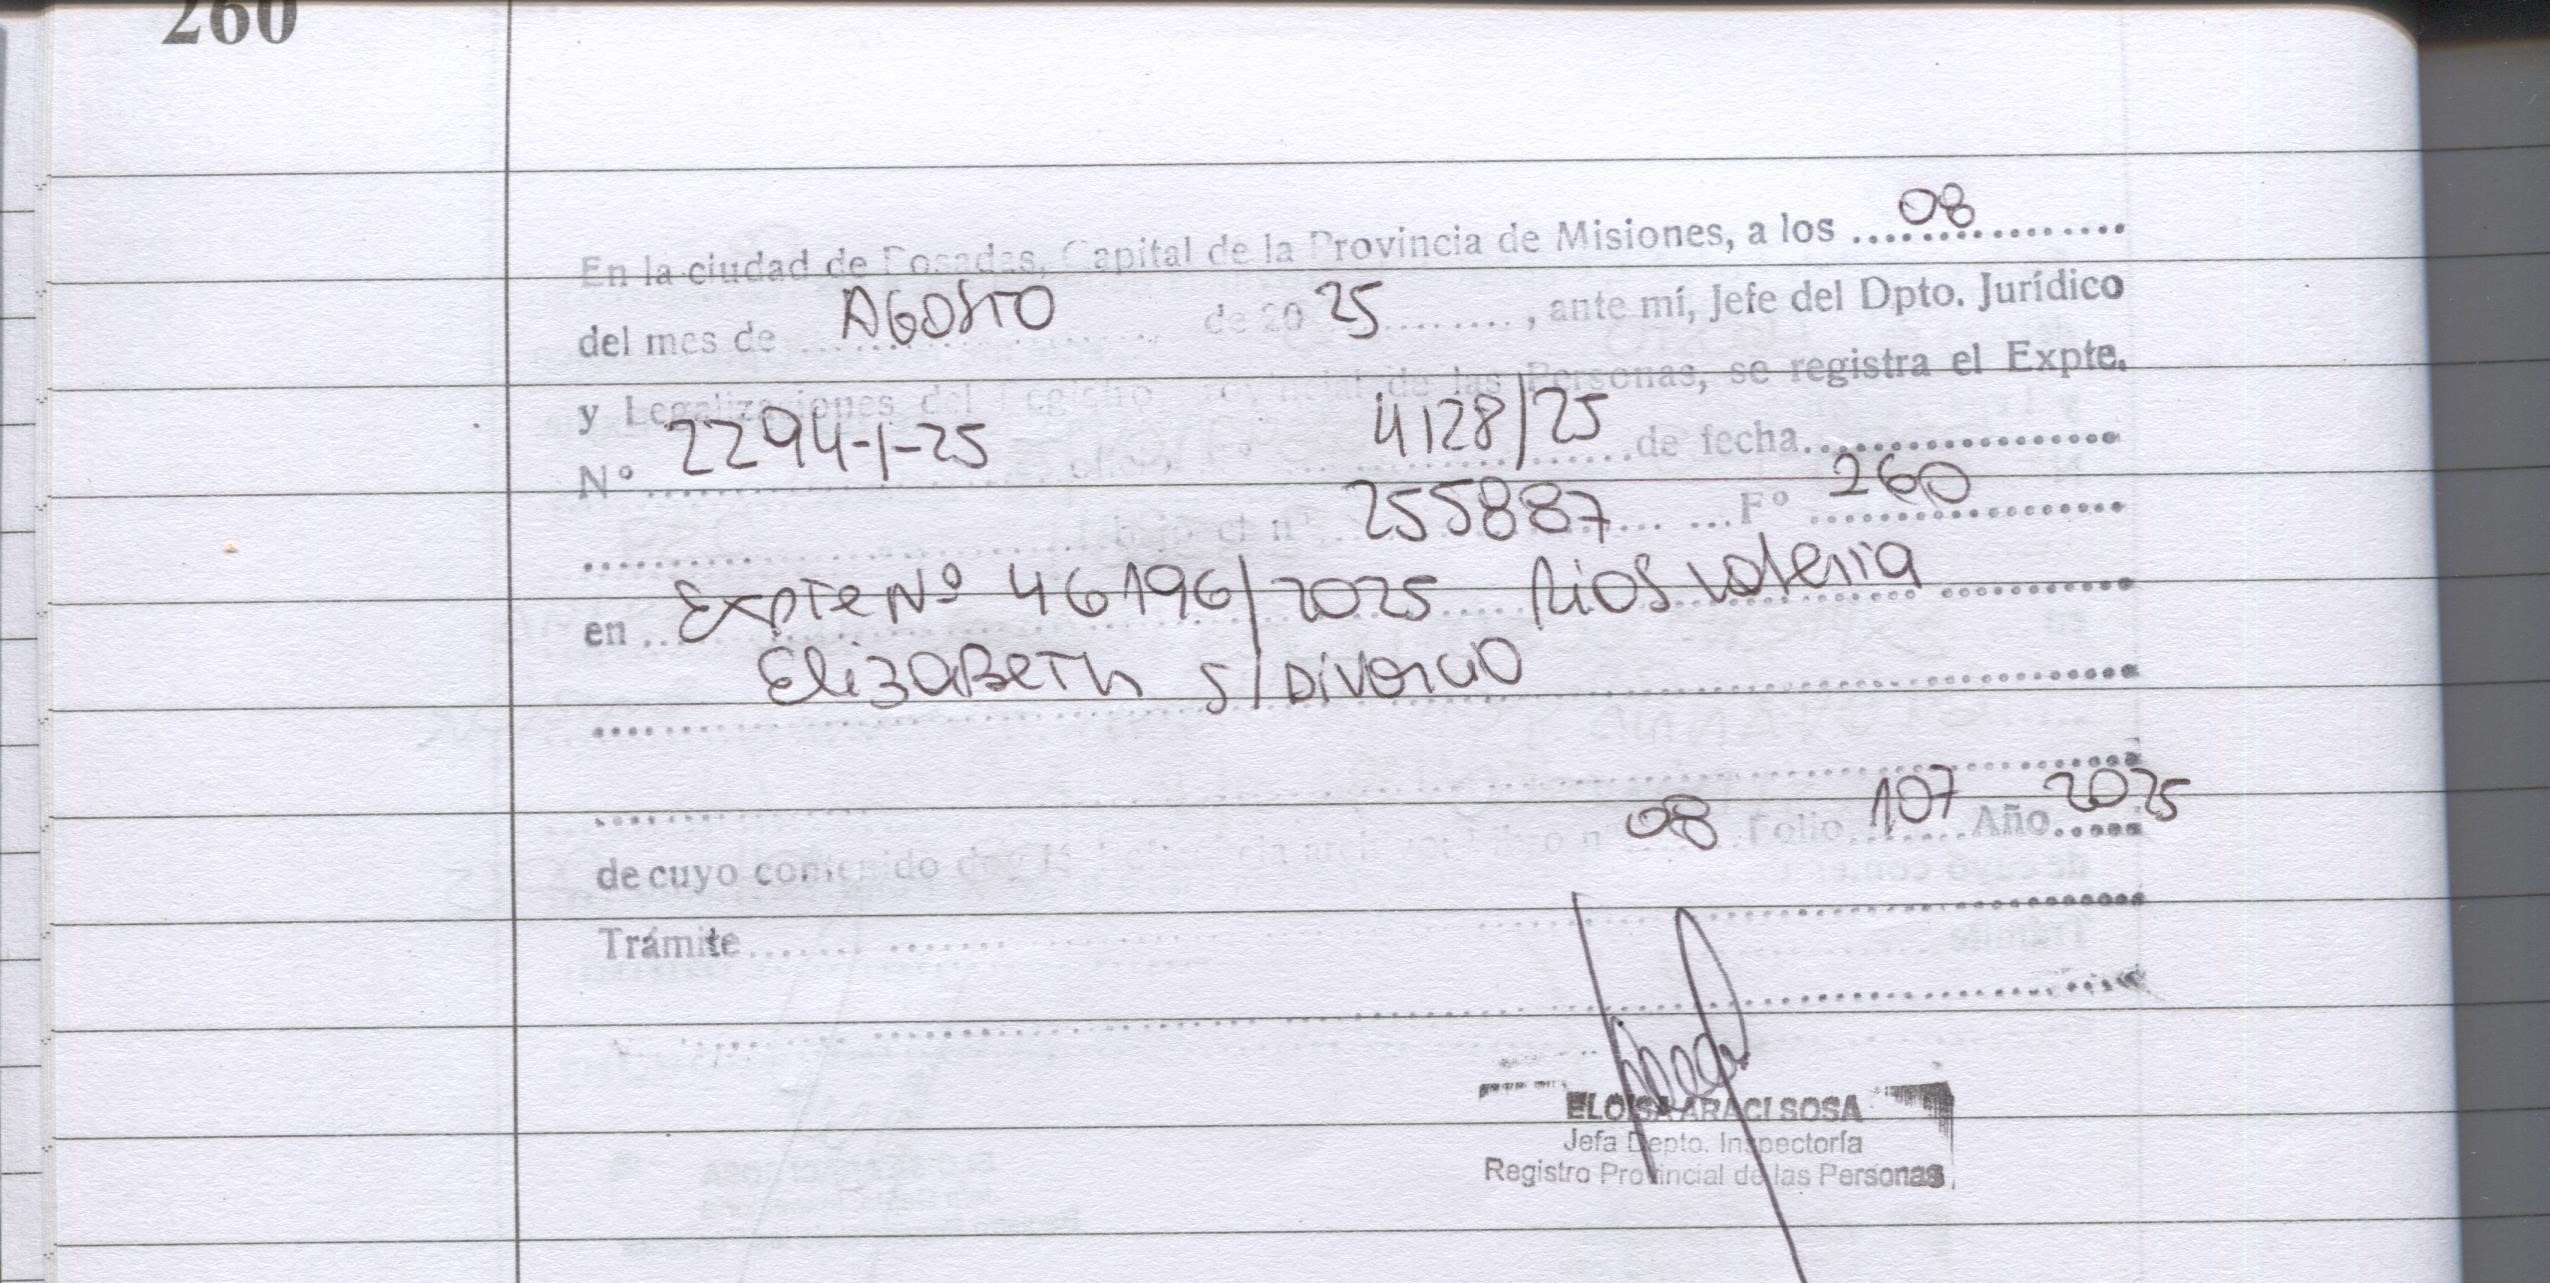 260
En la ciudad de Posadas, Capital de la Provincia de Misiones, a los ....08....
del mes de AGOSTO de 20 25 , ante mí, Jefe del Dpto. Jurídico
y Legalizaciones del Registro Provincial de las Personas, se registra el Expte.
Nº 2294-1-25 4128/25 de fecha..........
bajo el nº 255887 Fº 260
en Expte Nº 46196/2025 Rios Valeria
Elizabeth s/ Divorcio
de cuyo contenido doy 08 Folio 107 Año 2025
Trámite
ELOISA ARACI SOSA
Jefa Depto. Inspectoría
Registro Provincial de las Personas